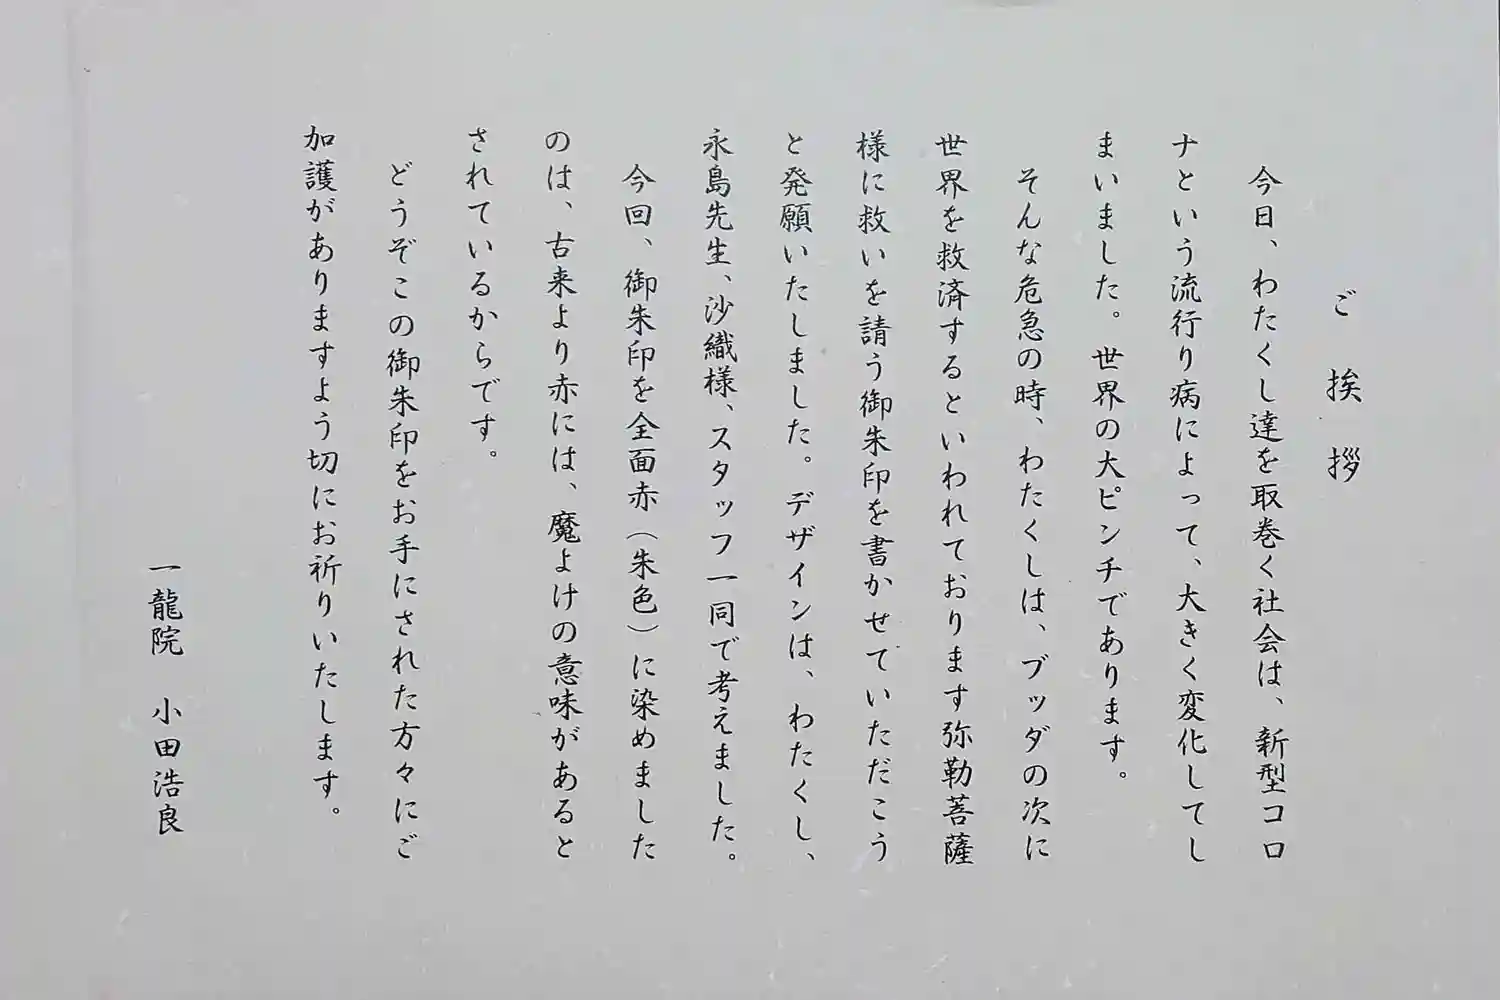 ご挨拶
今日、わたくし達を取巻く社会は、新型コロ
ナという流行り病によって、大きく変化してし
まいました。世界の大ピンチであります。
そんな危急の時、わたくしは、ブッダの次に
世界を救済するといわれております弥勒菩薩
様に救いを請う御朱印を書かせていただこう
と発願いたしました。デザインは、わたくし、
永島先生、沙織様、スタッフ一同で考えました。
今回、御朱印を全面赤（朱色）に染めました
のは、古来より赤には、魔よけの意味があると
されているからです。
どうぞこの御朱印をお手にされた方々にご
加護がありますよう切にお祈りいたします。
一龍院　小田浩良